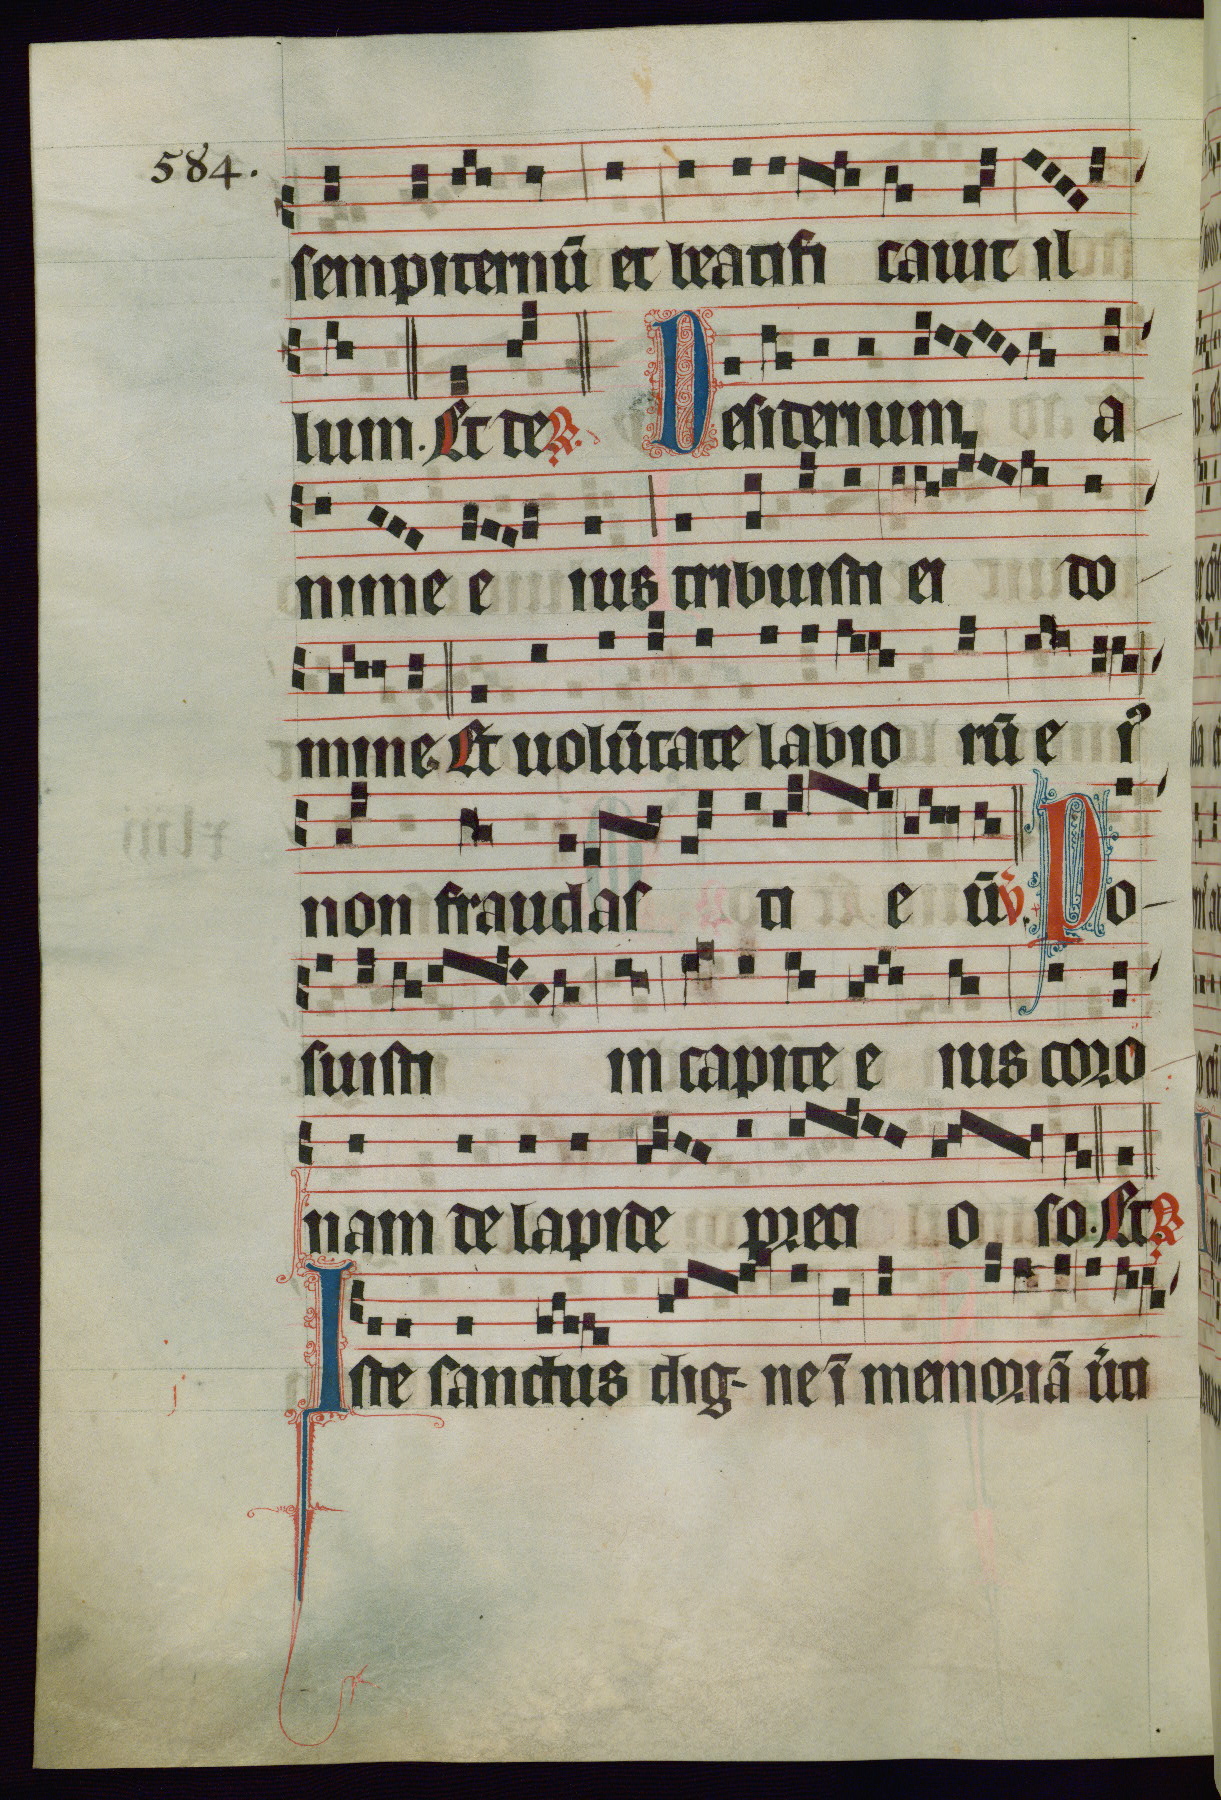 584.
sempiternū et beatifi cauit il
lum. Et de R. Desiderium a
nime e ius tribuisti ei do
mine. Et uolūtate labio rū e iꝰ
non fraudas ti e ū v. Po-
suisti in capite e ius coro-
nam de lapide preci o so. Et R
Iste sanctus dig- ne ī memoriā ūti